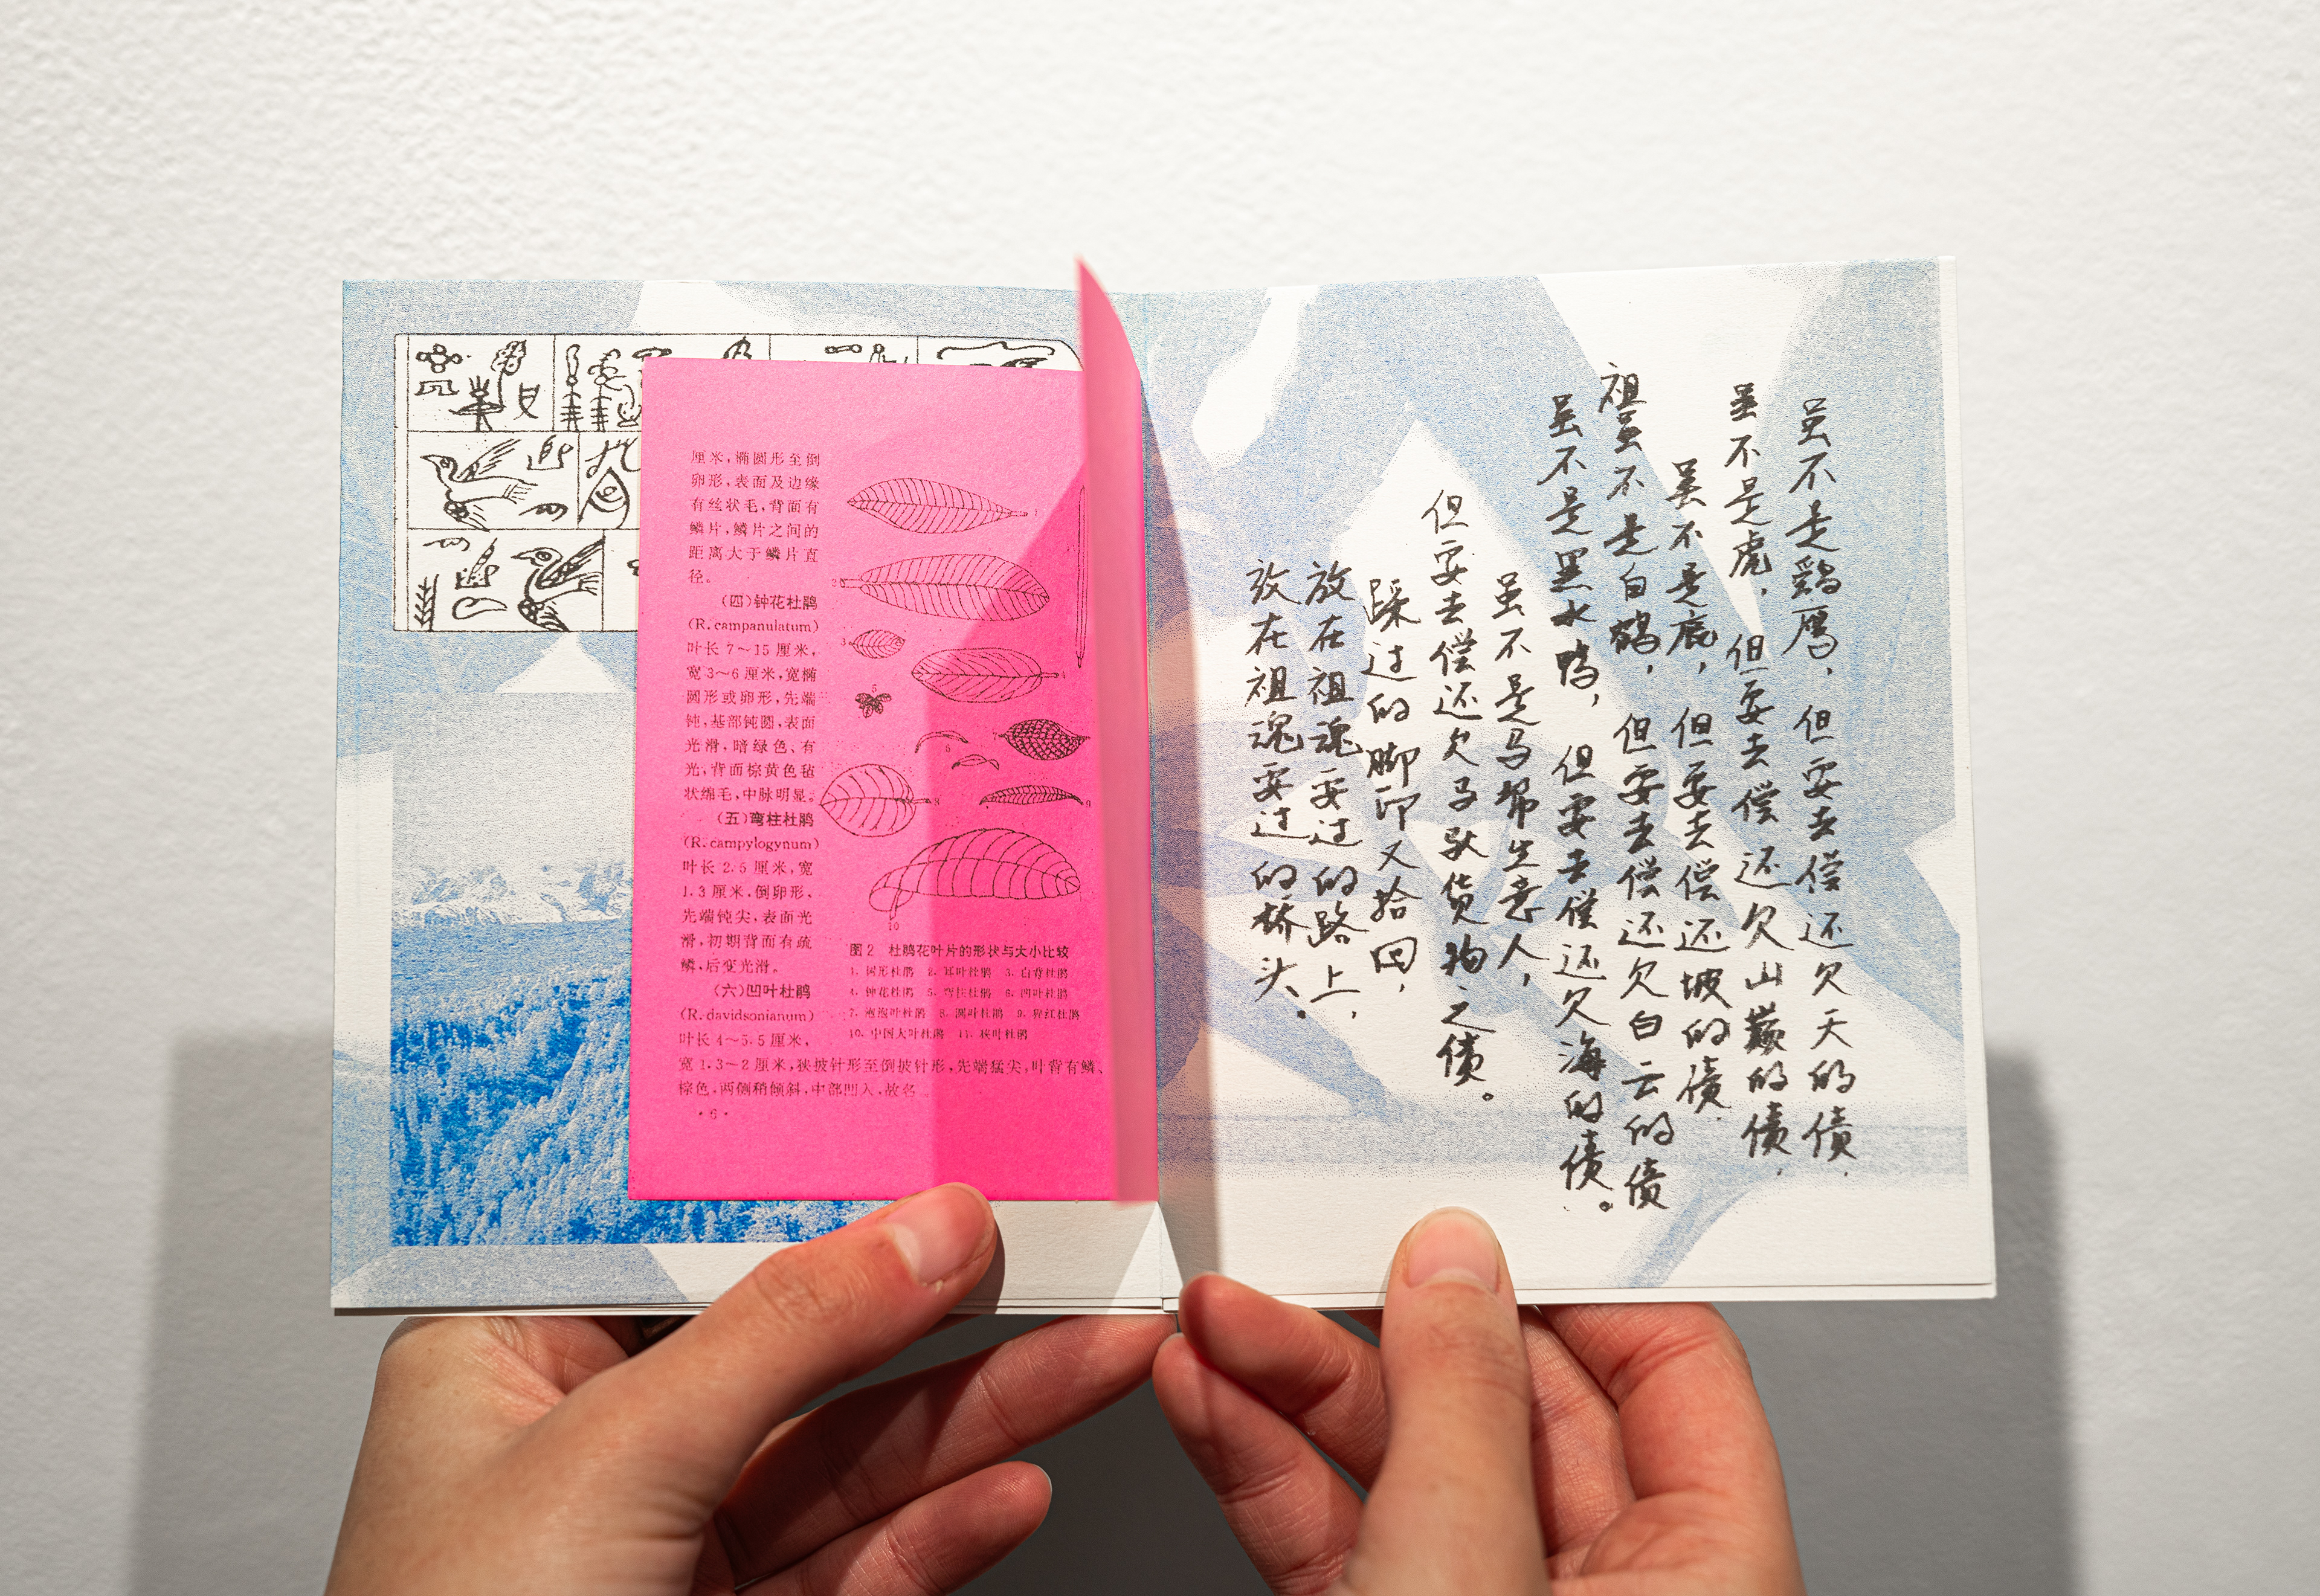 厘米,椭圆形至倒
卵形,表面及边缘
有丝状毛,背面有
鳞片,鳞片之间的
距离大于鳞片直
径。
(四)钟花杜鹃
(R. campanulatum)
叶长 7～15 厘米,
宽 3～6 厘米,宽椭
圆形或卵形,先端
钝,基部钝圆,表面
光滑,暗绿色、有
光,背面棕黄色毡
状绵毛,中脉明显。
(五)弯柱杜鹃
(R. campylogynum)
叶长 2.5 厘米,宽
1.3 厘米,倒卵形、
先端钝尖,表面光
滑,初期背面有疏
鳞,后变光滑。
(六)凹叶杜鹃
(R. davidsonianum)
叶长 4～5.5 厘米,
宽 1.3～2 厘米,狭披针形至倒披针形,先端猛尖,叶背有鳞、
棕色,两侧稍倾斜,中部凹入,故名
·6·
图 2 杜鹃花叶片的形状与大小比较
1. 树形杜鹃 2. 耳叶杜鹃 3. 白背杜鹃
4. 钟花杜鹃 5. 弯柱杜鹃 6. 凹叶杜鹃
7. 泡泡叶杜鹃 8. 圆叶杜鹃 9. 猩红杜鹃
10. 中国大叶杜鹃 11. 狭叶杜鹃
虽不是鹞鹰,但要去偿还欠天的债.
虽不是虎,但要去偿还欠山巅的债.
虽不是鹿,但要去偿还坡的债.
祖虽不是白鹤,但要去偿还欠白云的债
虽不是黑水鸭,但要去偿还欠海的债。
虽不是马帮生意人,
但要去偿还欠马驮货物之债。
踩过的脚印又拾回,
放在祖魂要过的路上,
放在祖魂要过的桥头。